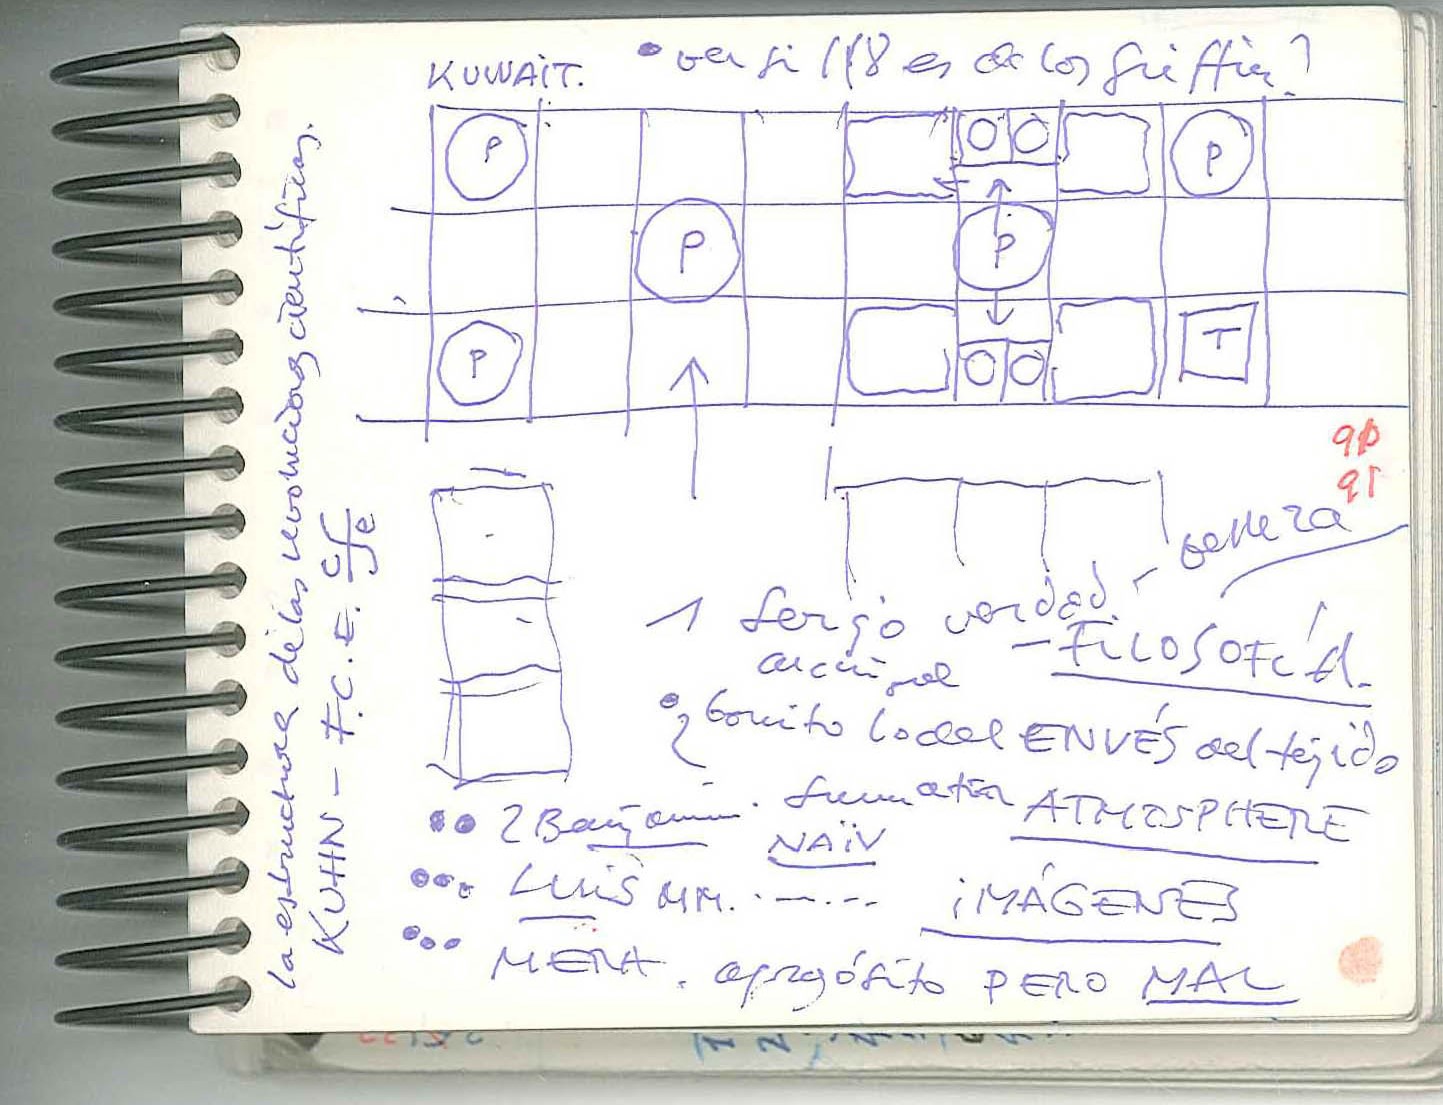 KUWAIT. • ver si 118 es de los Griffin?
P P
P P
P T
90
91
belleza
1 Sergio verdad.
— FILOSOFÍA.
• bonito lo del ENVÉS del tejido
•• 2 Benjamin. ATMOSPHERE
NAÏV
••• LUIS MM. ·—·-·- IMÁGENES
••• MERA. a propósito PERO MAL
La estructura de las revoluciones científicas.
KUHN — F.C.E.